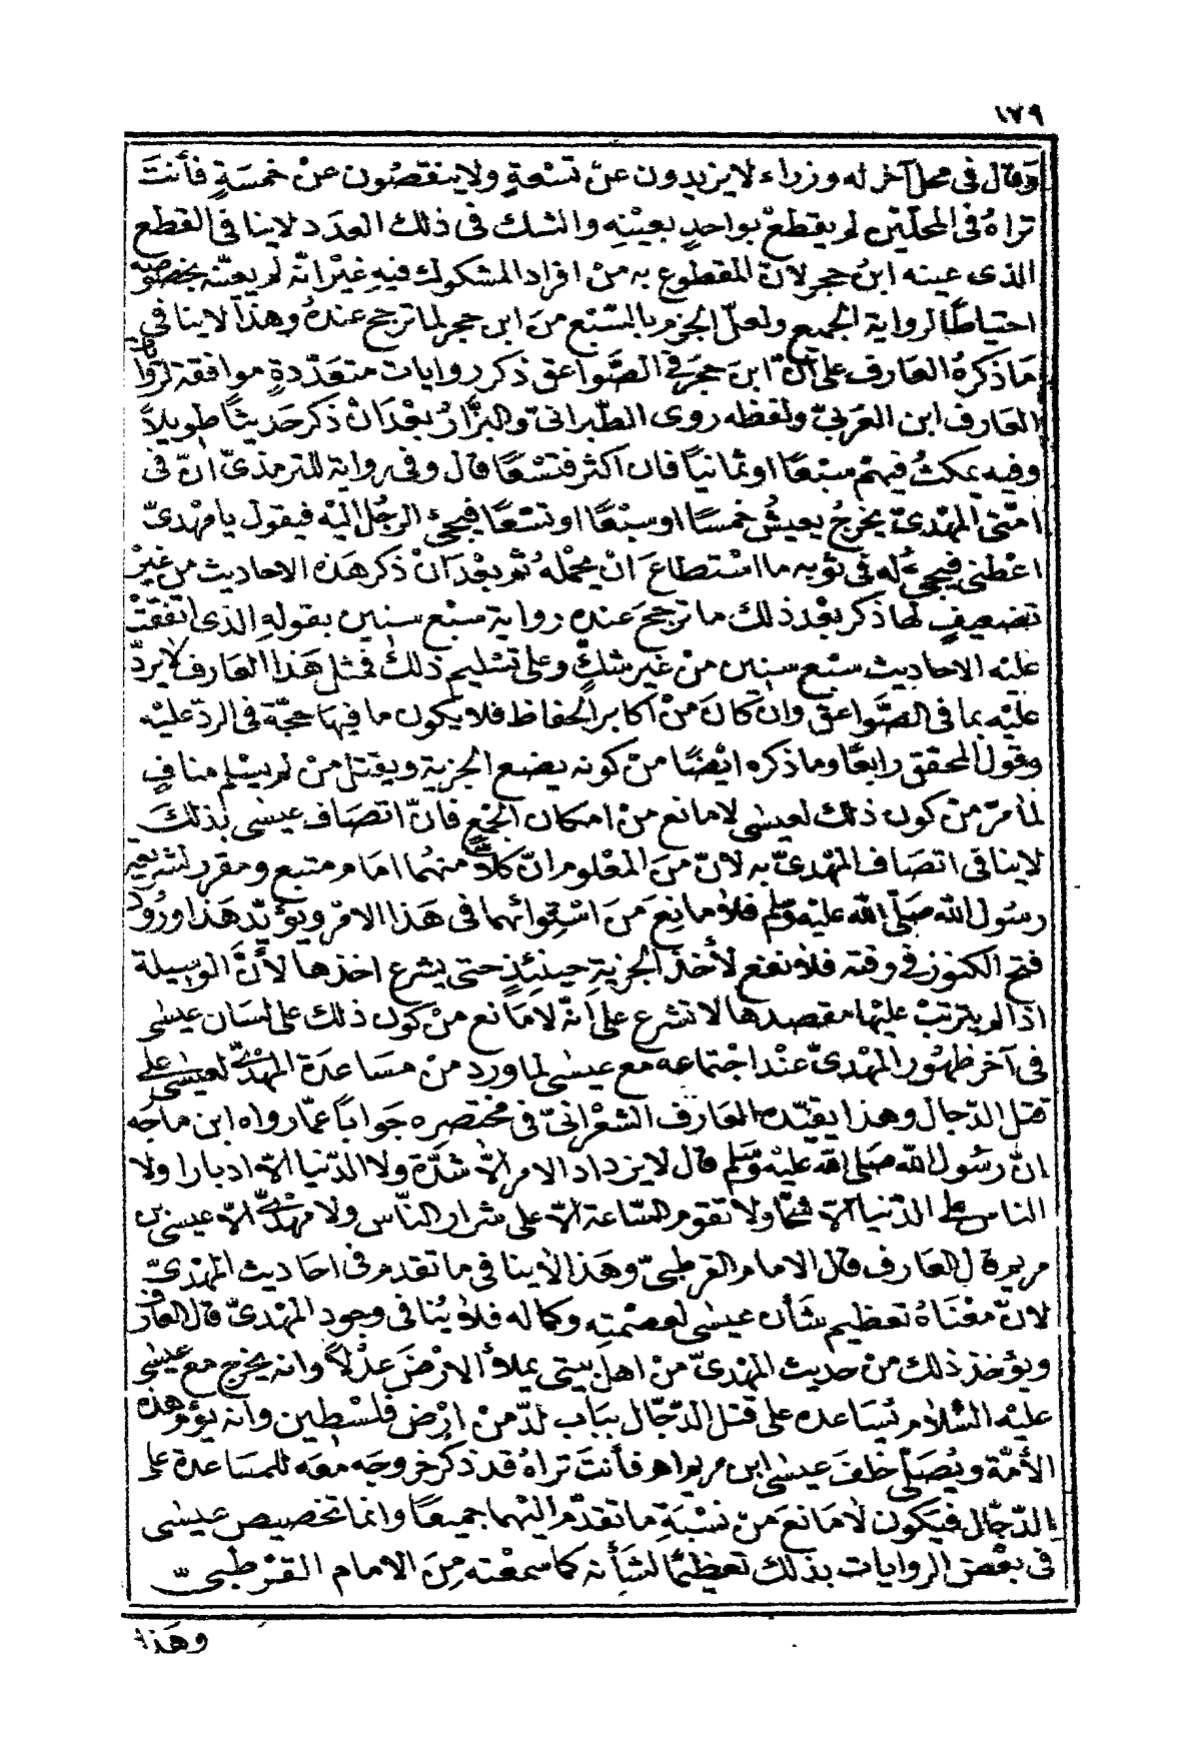 ١٧٩
وَقال فى محل آخر له وزراء لا يزيدون عنْ تسْعةٍ ولا ينقصُون عنْ خمسَةٍ فأنتَ
تراهُ فى المحلّين لم يقطعْ بواحدٍ بعيْنِهِ والشك فى ذلك العدَد لا ينافى القطع
الذى عينه ابنُ حجر لانّ المقطوع به منْ افراد المشكوك فيهِ غيْرانّه لم يعيّنه بخصوصه
احتياطًا لرواية الجميع ولعلّ الجزم بالتسْع منَ ابن حجر لما ترجح عندهُ وهذا لا ينافى
مَا ذكرهُ العَارف على أنّ ابنَ حجَر فى الصَّواعق ذكر روايات متعَدّدةٍ موافقة لرواية
العَارف ابن العَربىّ ولفظه روى الطّبرانىّ والبزّارُ بعْدَ انْ ذكر حَديثًا طويلاً
وفيه يمكثُ فيهمْ سبْعًا او ثمانيًا فان اكثر فتسْعًا قال وفى رواية للترمذىّ انّ فى
امّتى المهْدىّ يخرجُ يعيشُ خمسًا او سبْعًا او تسْعًا فيجئ الرجُل اليْه فيقول يا مهْدىّ
اعْطنى فيجىءُ له فى ثوْبه ما اسْتطاعَ انْ يحْملهُ ثم بعْدَ انْ ذكر هَذه الاحاديث من غيْر
تضعيفٍ لها ذكر بعْد ذلك ما ترجحَ عنده رواية سبْع سنين بقولهِ الذى اتفقتْ
عليْه الاحاديث سبْع سنين منْ غير شكٍّ وعلى تسْليم ذلك فمثل هَذا العَارف لا يردّ
عليْه بما فى الصَّواعق وانْ كانَ منْ اكابر الحفاظ فلا يكون ما فيهَا حجّة فى الرد عليْه
وقول المحقق رابعًا وما ذكره ايْضًا منْ كونه يضع الجزية ويقتل منْ لم يسْلم منافٍ
لما مرّ منْ كون ذلك لعيسى لا مانع منْ امكان الجمْع فانّ اتصَاف عيسَى بذلك
لا ينافى اتصَاف المهْدىّ به لانّ منَ المعْلوم انّ كلاًّ منهُما امَام متبع ومقرر لشريعة
رسُول الله صَلّى الله عليْه وسَلم فلا مانِعَ مَنَ اسْتوائهما فى هَذا الامْر ويؤيّد هَذا ورُود
فتح الكنوز فى وقته فلا نفع لأخذ الجزيةِ حينئذٍ حتى يشرع اخذها لأنَّ الوسيلة
اذا لم يترتبْ عليْها مقصدها لا تشرع على انّه لا مَانع منْ كون ذلك على لسَان عيسَى
فى آخر ظهُور المهْدىّ عنْد اجْتماعه مع عيسَى لما ورد منْ مسَاعدة المهْدىّ لعيسَى على
قتل الدّجال وهذا يقيّده العَارف الشعْرانىّ فى مختصره جَوابًا عمّا رواه ابن ماجَه
انّ رسُول الله صَلى الله عليْه وسَلم قال لا يزداد الامر الاّ شدّة ولا الدّنيا الاّ ادبارا ولا
الناس على الدّنيا الاّ شحًّا ولا تقوم السّاعة الاّ على شرار النّاس ولا مهْدىّ الاّ عيسى بن
مريم قال العَارف قال الامام القرطبىّ وهَذا لا ينافى ما تقدم فى احَاديث المهْدىّ
لانّ معْنَاهُ تعظيم شَأن عيسَى لعصْمتِهِ وكماله فلا يُنافى وجود المهْدىّ قال العَارف
ويؤخذ ذلك منْ حديث المهْدىّ منْ اهل بيتى يملأ الارْضَ عدْلاً وانه يخرج مع عيسَى
عليْه السّلام يُسَاعده على قتل الدّجّال ببَاب لدّ منْ ارْض فلسْطين وأنه يؤم هذه
الأمّة ويُصَلّى خلفَ عيسَى ابن مريم اه فأنتَ تراهُ قد ذكر خروجَه معَه للمسَاعدة على
الدّجّال فيَكون لا مَانعَ منْ نسْبَةِ ما تقدّم اليْهما جميعًا وانما تخصيص عيسَى
فى بعْض الروايات بذلك تعظيمًا لشأنه كما سمعْته مِنَ الامام القرْطبىّ
وهَذا